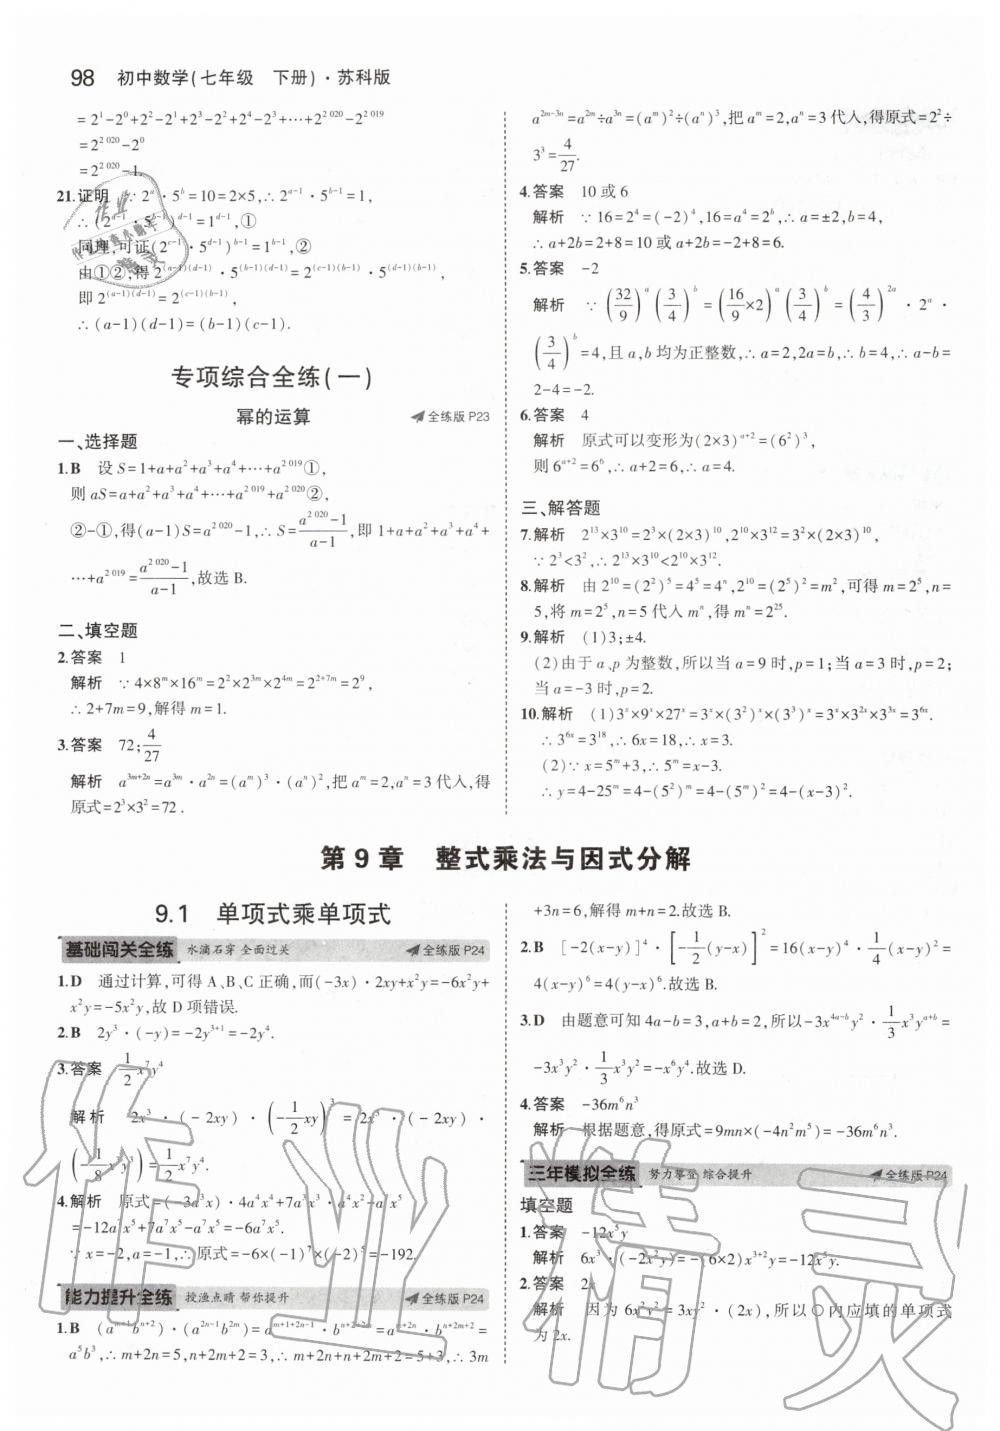 98 初中数学(七年级 下册)·苏科版
=2¹-2⁰+2²-2¹+2³-2²+2⁴-2³+…+2²⁰²⁰-2²⁰¹⁹
=2²⁰²⁰-2⁰
=2²⁰²⁰-1.
21.证明 ∵2ᵃ·5ᵇ=10=2×5,∴2ᵃ⁻¹·5ᵇ⁻¹=1,
∴(2ᵃ⁻¹·5ᵇ⁻¹)ᵈ⁻¹=1ᵈ⁻¹,①
同理,可证(2ᶜ⁻¹·5ᵈ⁻¹)ᵇ⁻¹=1ᵇ⁻¹,②
由①②,得2^{(a-1)(d-1)}·5^{(b-1)(d-1)}=2^{(c-1)(b-1)}·5^{(d-1)(b-1)},
即2^{(a-1)(d-1)}=2^{(c-1)(b-1)},
∴(a-1)(d-1)=(b-1)(c-1).
专项综合全练(一)
幂的运算 全练版P23
一、选择题
1.B 设S=1+a+a²+a³+a⁴+…+a²⁰¹⁹①,
则aS=a+a²+a³+a⁴+…+a²⁰¹⁹+a²⁰²⁰②,
②-①,得(a-1)S=a²⁰²⁰-1,∴S=\frac{a^{2020}-1}{a-1},即1+a+a²+a³+a⁴+
…+a²⁰¹⁹=\frac{a^{2020}-1}{a-1},故选B.
二、填空题
2.答案 1
解析 ∵4×8ᵐ×16ᵐ=2²×2³ᵐ×2⁴ᵐ=2²⁺⁷ᵐ=2⁹,
∴2+7m=9,解得m=1.
3.答案 72;\frac{4}{27}
解析 a³ᵐ⁺²ⁿ=a³ᵐ·a²ⁿ=(aᵐ)³·(aⁿ)²,把aᵐ=2,aⁿ=3代入,得
原式=2³×3²=72.
a²ᵐ⁻³ⁿ=a²ᵐ÷a³ⁿ=(aᵐ)²÷(aⁿ)³,把aᵐ=2,aⁿ=3代入,得原式=2²÷
3³=\frac{4}{27}.
4.答案 10或6
解析 ∵16=2⁴=(-2)⁴,16=a⁴=2ᵇ,∴a=±2,b=4,
∴a+2b=2+8=10或a+2b=-2+8=6.
5.答案 -2
解析 ∵(\frac{32}{9})^{a}(\frac{3}{4})^{b}=(\frac{16}{9}×2)^{a}(\frac{3}{4})^{b}=(\frac{4}{3})^{2a}·2ᵃ·
(\frac{3}{4})^{b}=4,且a,b均为正整数,∴a=2,2a=b,∴b=4,∴a-b=
2-4=-2.
6.答案 4
解析 原式可以变形为(2×3)ᵃ⁺²=(6²)³,
则6ᵃ⁺²=6⁶,∴a+2=6,∴a=4.
三、解答题
7.解析 2¹³×3¹⁰=2³×(2×3)¹⁰,2¹⁰×3¹²=3²×(2×3)¹⁰,
∵2³<3²,∴2¹³×3¹⁰<2¹⁰×3¹².
8.解析 由2¹⁰=(2²)⁵=4⁵=4ⁿ,2¹⁰=(2⁵)²=m²,可得m=2⁵,n=
5,将m=2⁵,n=5代入mⁿ,得mⁿ=2²⁵.
9.解析 (1)3;±4.
(2)由于a、p为整数,所以当a=9时,p=1;当a=3时,p=2;
当a=-3时,p=2.
10.解析 (1)3ˣ×9ˣ×27ˣ=3ˣ×(3²)ˣ×(3³)ˣ=3ˣ×3²ˣ×3³ˣ=3⁶ˣ.
∴3⁶ˣ=3¹⁸,∴6x=18,∴x=3.
(2)∵x=5ᵐ+3,∴5ᵐ=x-3.
∴y=4-25ᵐ=4-(5²)ᵐ=4-(5ᵐ)²=4-(x-3)².
第9章 整式乘法与因式分解
9.1 单项式乘单项式
基础闯关全练 水滴石穿 全面过关 全练版P24
1.D 通过计算,可得A、B、C正确,而(-3x)·2xy+x²y=-6x²y+
x²y=-5x²y,故D项错误.
2.B 2y³·(-y)=-2y³⁺¹=-2y⁴.
3.答案 \frac{1}{2}x⁷y⁴
解析 2x³·(-2xy)·(-\frac{1}{2}xy)^{3}=2x³·(-2xy)·
(-\frac{1}{8}x³y³)=\frac{1}{2}x⁷y⁴.
4.解析 原式=(-3a³x)·4a⁴x⁴+7a⁷x³·x²-a²x·a⁵x⁴
=-12a⁷x⁵+7a⁷x⁵-a⁷x⁵=-6a⁷x⁵.
∵x=-2,a=-1,∴原式=-6×(-1)⁷×(-2)⁵=-192.
能力提升全练 授渔点睛 帮你提升 全练版P24
1.B (aᵐ⁺¹bⁿ⁺²)·(a²ⁿ⁻¹b²ᵐ)=aᵐ⁺¹⁺²ⁿ⁻¹·bⁿ⁺²⁺²ᵐ=aᵐ⁺²ⁿ·bⁿ⁺²ᵐ⁺²=
a⁵b³,∴m+2n=5,n+2m+2=3,∴m+2n+n+2m+2=5+3,∴3m
+3n=6,解得m+n=2.故选B.
2.B [-2(x-y)]⁴·[-\frac{1}{2}(y-x)]^{2}=16(x-y)⁴·\frac{1}{4}(x-y)²=
4(x-y)⁶=4(y-x)⁶.故选B.
3.D 由题意可知4a-b=3,a+b=2,所以-3x^{4a-b}y²·\frac{1}{3}x³y^{a+b}=
-3x³y²·\frac{1}{3}x³y²=-x⁶y⁴.故选D.
4.答案 -36m⁶n³
解析 根据题意,得原式=9mn×(-4n²m⁵)=-36m⁶n³.
三年模拟全练 努力攀登 综合提升 全练版P24
填空题
1.答案 -12x⁵y
解析 6x³·(-2x²y)=-(6×2)x³⁺²y=-12x⁵y.
2.答案 2x
解析 因为6x²y²=3xy²·(2x),所以○内应填的单项式
为2x.
作业精灵